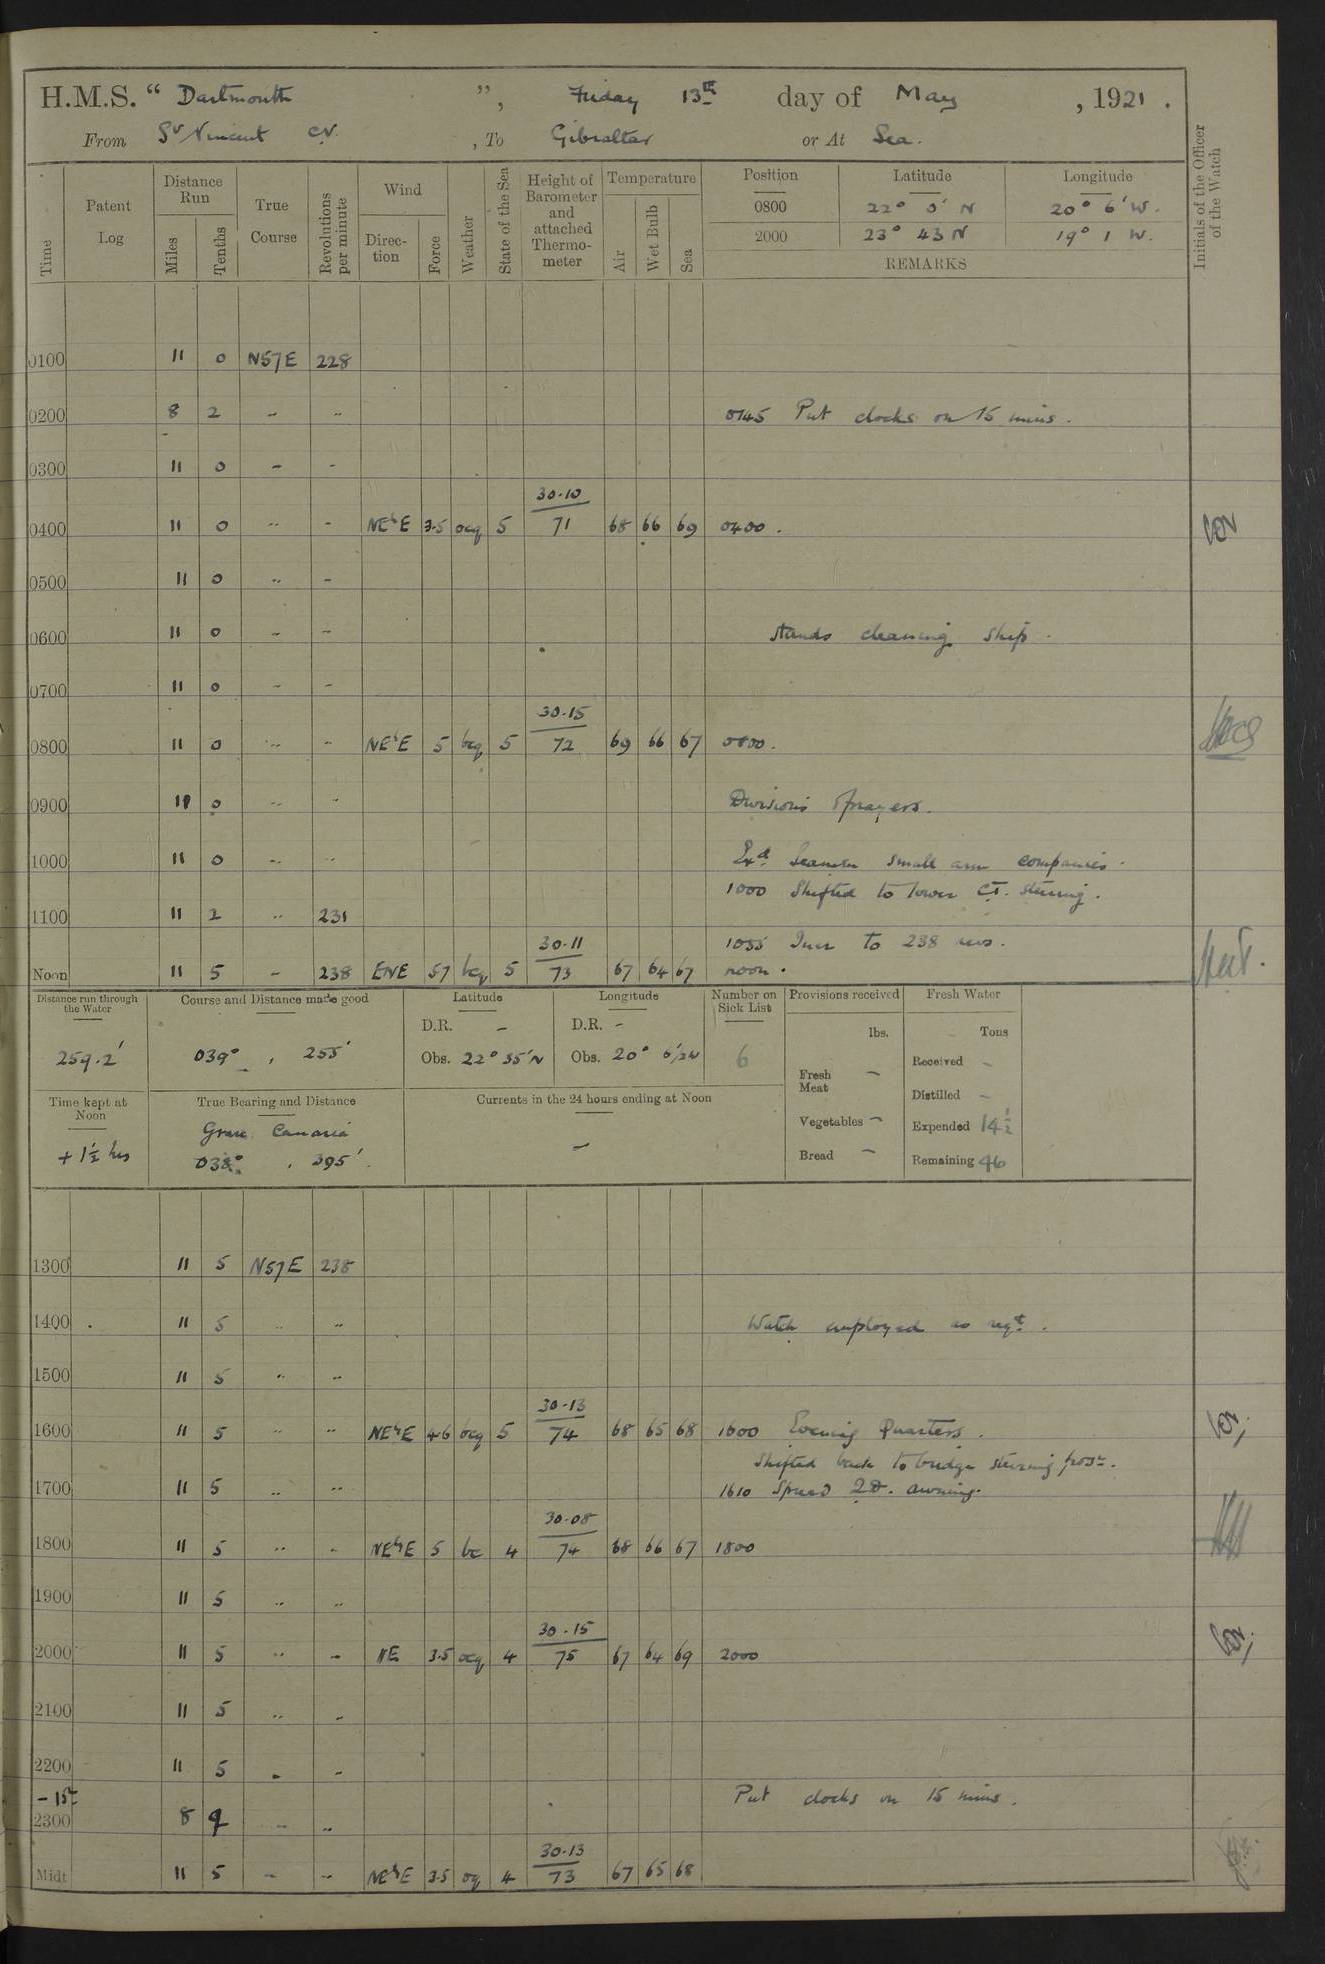 H.M.S. “ Dartmouth ”, Friday 13th day of May , 1921 .
From St Vincent C.V. , To Gibraltar or At Sea.
Initials of the Officer of the Watch
Time Patent Log Distance Run Miles Tenths True Course Revolutions per minute Wind Direc-tion Force Weather State of the Sea Height of Barometer and attached Thermo-meter Temperature Air Wet Bulb Sea
Position Latitude Longitude
0800 22° 0' N 20° 6' W.
2000 23° 43 N 19° 1 W.
REMARKS
0100 11 0 N57E 228
0200 8 2 " " 0145 Put clocks on 15 mins.
0300 11 0 " "
30.10
0400 11 0 " " NE'E 3.5 ocq 5 71 68 66 69 0400.
0500 11 0 " "
0600 11 0 " " Hands cleaning ship.
0700 11 0 " "
30.15
0800 11 0 " " NE'E 5 bcq 5 72 69 66 67 0800.
0900 11 0 " " Divisions & prayers.
1000 11 0 " " Exd. Seamen small arm companies.
1000 Shifted to lower C.T. steering.
1100 11 2 " 231
30.11 1055 Incr to 238 revs.
Noon 11 5 " 238 ENE 57 bcq 5 73 67 64 67 noon.
Distance run through the Water Course and Distance made good Latitude Longitude Number on Sick List Provisions received Fresh Water
D.R. - D.R. - lbs. Tons
259.2' 039° , 255' Obs. 22° 35'N Obs. 20° 6'½W 6
Fresh Meat - Received -
Time kept at Noon True Bearing and Distance Currents in the 24 hours ending at Noon Distilled -
Gran Canaria Vegetables - Expended 14½
+ 1½ hrs 038° , 395'. - Bread - Remaining 46
1300 11 5 N57E 238
1400 11 5 " " Watch employed as reqd.
1500 11 5 " "
30.13
1600 11 5 " " NE'E 46 bcq 5 74 68 65 68 1600 Evening Quarters.
Shifted back to bridge steering posn.
1700 11 5 " " 1610 Spread Q.D. awning.
30.08
1800 11 5 " " NE'E 5 bc 4 74 68 66 67 1800
1900 11 5 " "
30.15
2000 11 5 " " NE 3.5 ocq 4 75 67 64 69 2000
2100 11 5 " "
2200 11 5 " "
- 15m Put clocks on 15 mins.
2300 8 9 " "
30.13
Midt 11 5 " " NE'E 3.5 oq 4 73 67 65 68